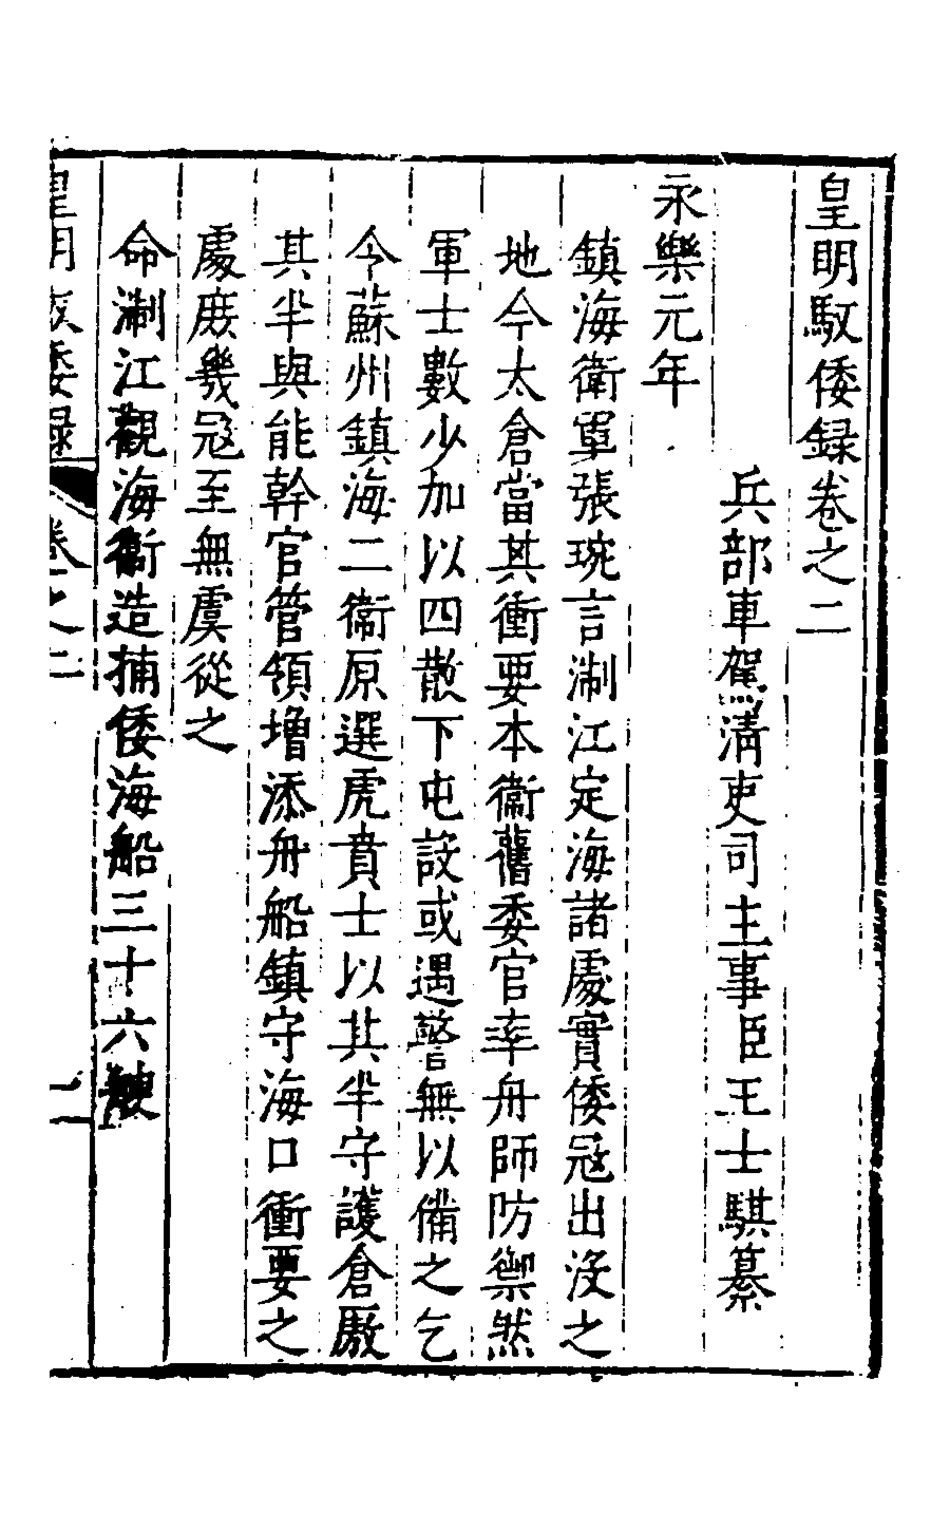 皇明馭倭録卷之二
兵部車駕清吏司主事臣王士騏纂
永樂元年
鎮海衛軍張琬言淛江定海諸處實倭冦出没之
地今太倉當其衝要本衛舊委官率舟師防禦然
軍士數少加以四散下屯設或遇警無以備之乞
令蘇州鎮海二衛原選虎賁士以其半守護倉厫
其半與能幹官管領增添舟船鎮守海口衝要之
處庻幾冦至無虞從之
命淛江觀海衛造捕倭海船三十六艘
皇明馭倭録 卷之二 二